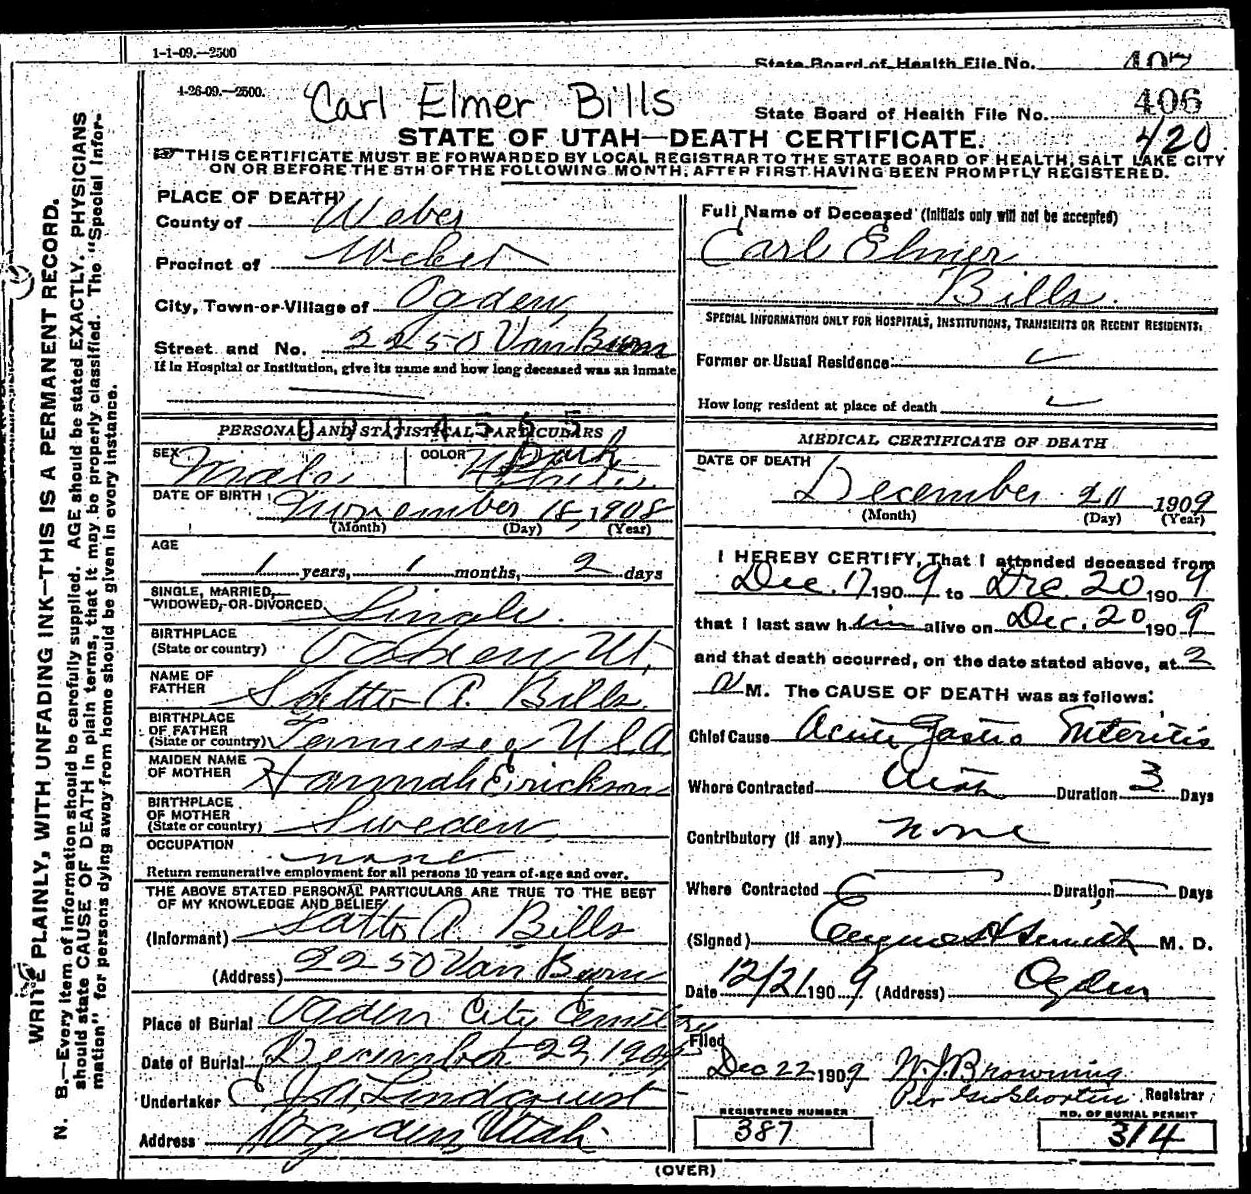 1-1-09.—2500
State Board of Health File No. 407
4-26-09.—2500.
Carl Elmer Bills
State Board of Health File No. 406
420
STATE OF UTAH—DEATH CERTIFICATE.
THIS CERTIFICATE MUST BE FORWARDED BY LOCAL REGISTRAR TO THE STATE BOARD OF HEALTH, SALT LAKE CITY
ON OR BEFORE THE 5TH OF THE FOLLOWING MONTH, AFTER FIRST HAVING BEEN PROMPTLY REGISTERED.
WRITE PLAINLY, WITH UNFADING INK—THIS IS A PERMANENT RECORD.
N. B.—Every item of information should be carefully supplied. AGE should be stated EXACTLY. PHYSICIANS
should state CAUSE OF DEATH in plain terms, that it may be properly classified. The "Special Infor-
mation" for persons dying away from home should be given in every instance.
PLACE OF DEATH
County of Weber
Precinct of Weber
City, Town or Village of Ogden
Street and No. 2250 Van Buren
If in Hospital or Institution, give its name and how long deceased was an inmate
PERSONAL AND STATISTICAL PARTICULARS
SEX Male
COLOR White Dark
DATE OF BIRTH November 18, 1908
(Month) (Day) (Year)
AGE
1 years, 1 months, 2 days
SINGLE, MARRIED,
WIDOWED, OR DIVORCED Single.
BIRTHPLACE
(State or country) Ogden Ut.
NAME OF
FATHER A. Bills
BIRTHPLACE
OF FATHER
(State or country) Tennessee U.S.A
MAIDEN NAME
OF MOTHER Hannah Erickson
BIRTHPLACE
OF MOTHER
(State or country) Sweden
OCCUPATION
none
Return remunerative employment for all persons 10 years of age and over.
THE ABOVE STATED PERSONAL PARTICULARS ARE TRUE TO THE BEST
OF MY KNOWLEDGE AND BELIEF
(Informant) A. Bills
(Address) 2250 Van Buren
Place of Burial Ogden City Cemetery
Date of Burial December 22, 1909
Undertaker Lindquist
Address Ogden, Utah
Full Name of Deceased (Initials only will not be accepted)
Carl Elmer
Bills.
SPECIAL INFORMATION ONLY FOR HOSPITALS, INSTITUTIONS, TRANSIENTS OR RECENT RESIDENTS.
Former or Usual Residence
How long resident at place of death
MEDICAL CERTIFICATE OF DEATH
DATE OF DEATH
December 20 1909
(Month) (Day) (Year)
I HEREBY CERTIFY, That I attended deceased from
Dec. 17 1909 to Dec. 20 1909
that I last saw him alive on Dec. 20 1909
and that death occurred, on the date stated above, at 2
M. The CAUSE OF DEATH was as follows:
Chief Cause Acute Gastro Enteritis
Where Contracted Utah Duration 3 Days
Contributory (if any) none
Where Contracted Duration Days
(Signed) Smith M. D.
Date 12/21 1909 (Address) Ogden
Filed
Dec 22 1909 W. J. Browning
Per Geo Shorten Registrar
REGISTERED NUMBER
387
NO. OF BURIAL PERMIT
314
(OVER)